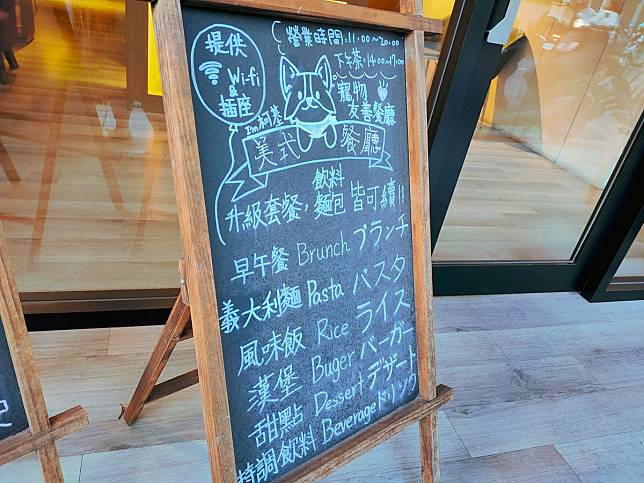 提供
Wi-fi
&
插座
營業時間:11:00~20:00
下午茶:14:00~17:00
寵物
友善餐廳
I'm 柯基
美式餐廳
升級套餐,飲料 麵包 皆可續!!
早午餐 Brunch ブランチ
義大利麵 Pasta パスタ
風味飯 Rice ライス
漢堡 Buger バーガー
甜點 Dessert デザート
特調飲料 Beverage ドリンク